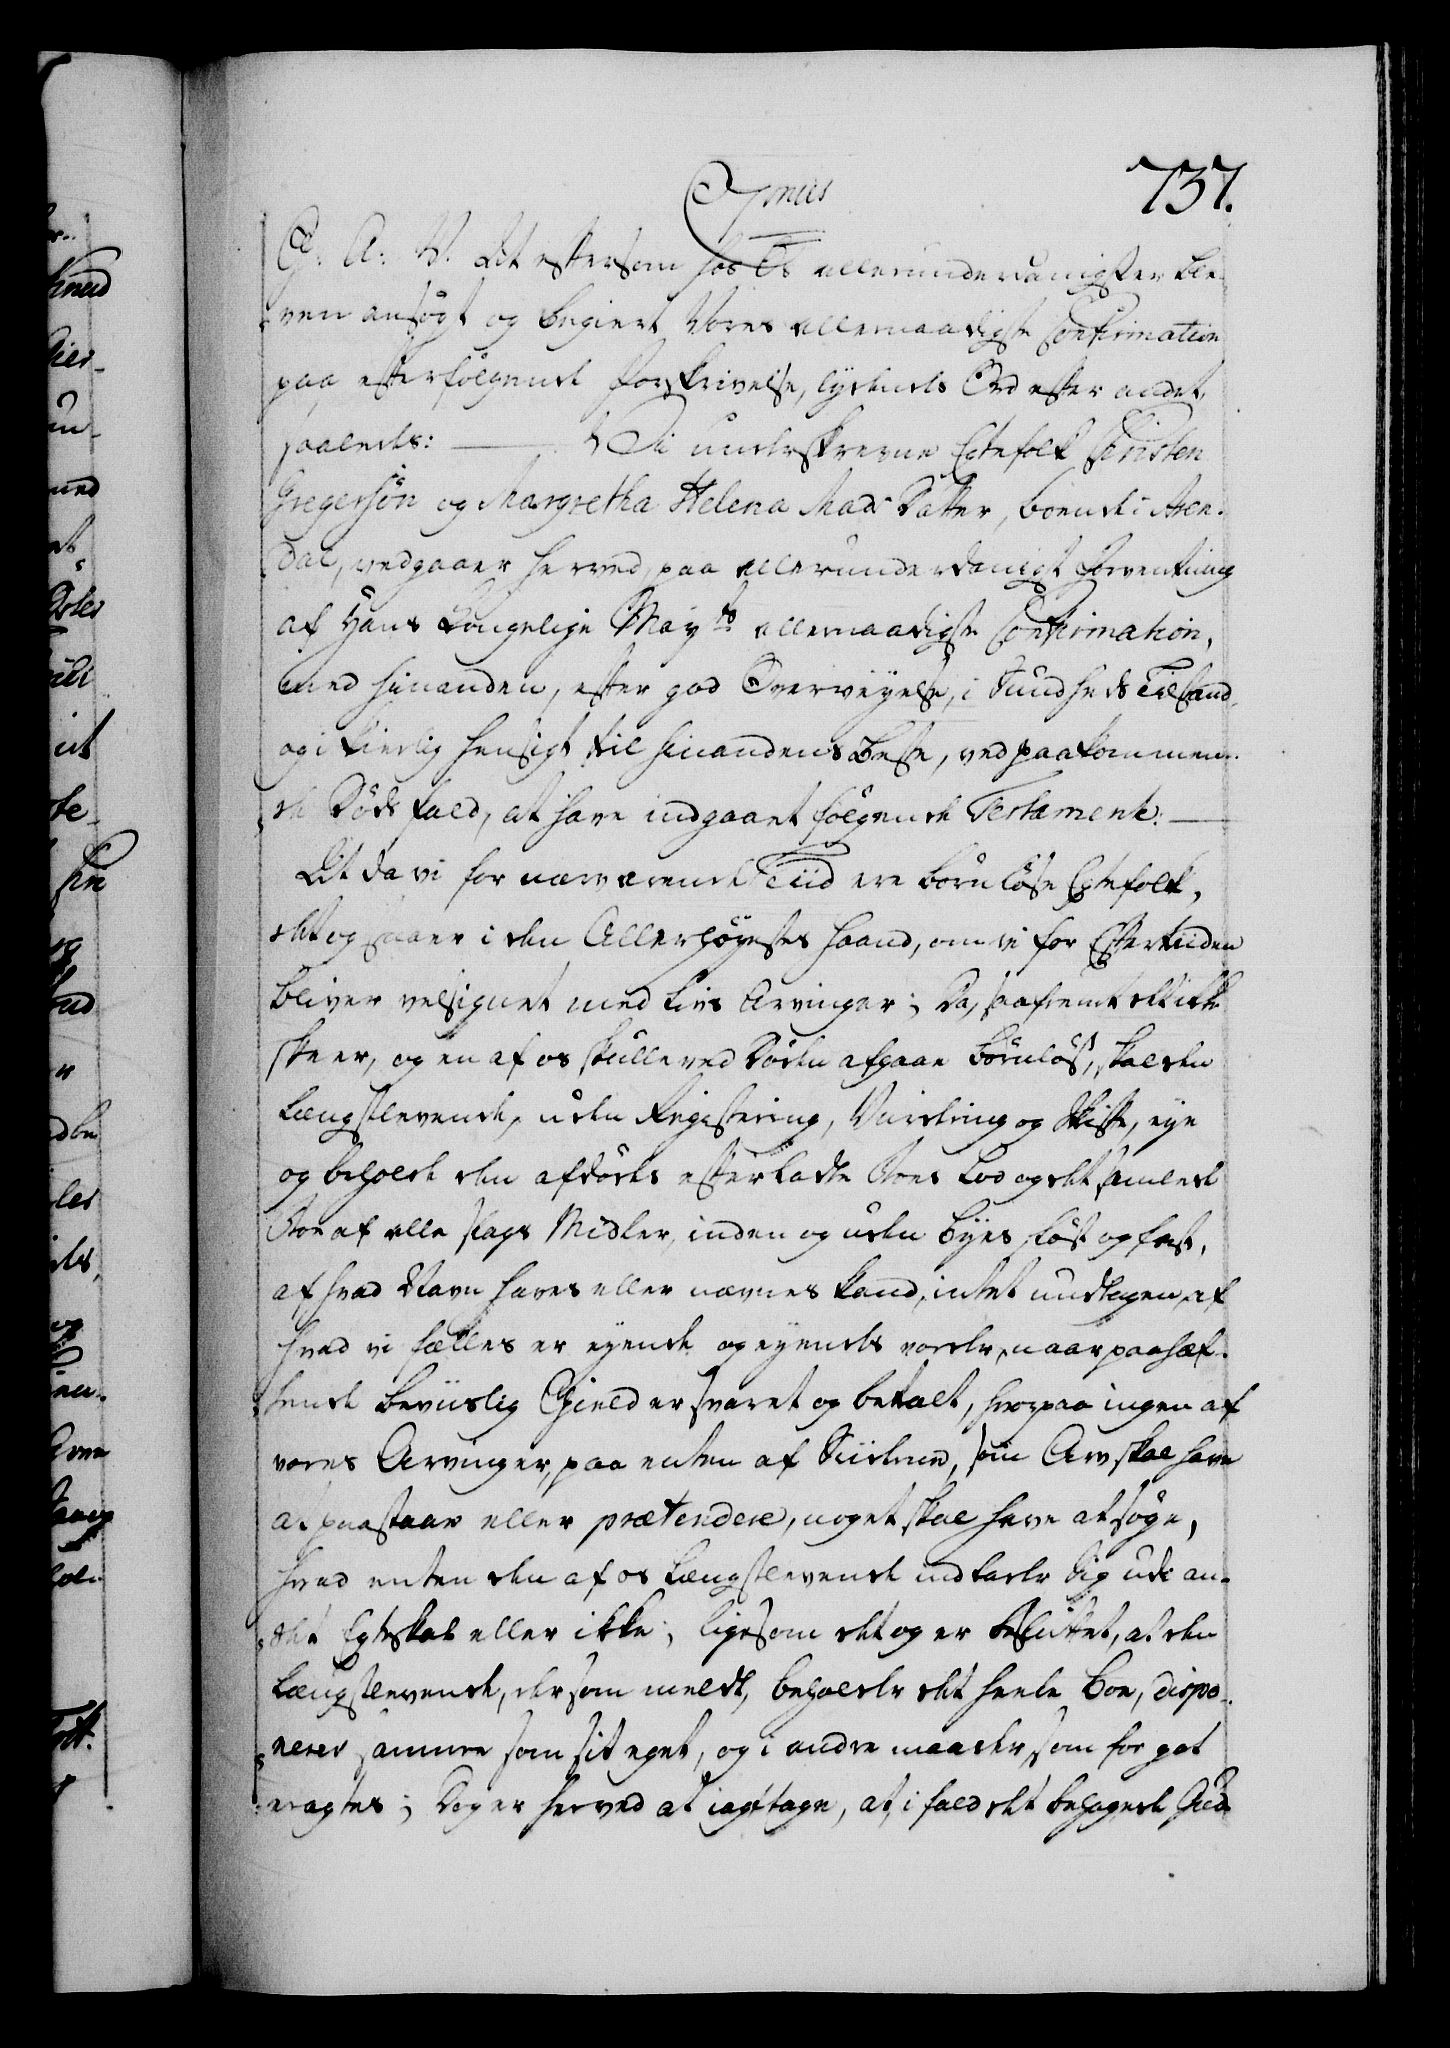 737.
G: A: V. At eftersom hos Os allerunderdanigst er ble-
ven ansøgt og begiert Vores allernaadigste Confirmation
paa efterfølgende forskrivelse, lydende Ord efter andet,
saaledes: — Vi underskrevne Egtefolk Christen
Gregersön og Margretha Helena Mads Datter, boende i Aren-
dal, vedgaaer herved, paa allerunderdanigst Forventning
af Hans Kongelige Mayts allernaadigste Confirmation,
med hinanden, efter god Overveyelse, i Sundheds Tilstand,
og i kierlig hensigt til hinandens Beste, ved paakommen-
de Døds fald, at have indgaaet følgende Testamente: —
At da vi for nærværende Tiid ere Børnløse Egtefolk,
det og staaer i den Allerhøyestes Haand, om vi for Eftertiden
bliver velsignet med Livs Arvinger; Da, saafremt det ikke
skeer, og en af os skulle ved Døden afgaae Børnløs, skal den
Længstlevende, uden Registering, Vurdering og Skifte, eye
og beholde den afdødes efterladte Boes Lod og det samlede
Boe af alle slags Midler, inden og uden Byes, løst og fast,
af hvad Navn haves eller nævnes kand, intet undtagen, af
hvad vi fælles er eyende og eyendes vorder, naar paahæf-
tende beviislig Gield er svaret og betalt, hvorpaa ingen af
vores Arvinger, paa enten af Siiderne, som Arv skal have
at paastaae eller prætendere, noget skal have at søge,
hvad enten den af os Længstlevende indlader sig udi an-
det Egteskab eller ikke; ligesom det og er besluttet, at den
Længstlevende, der som meldt, beholder det heele Boe, dispo-
nerer samme som sit eget, og i andre maader, som for got
eragtes; Dog er herved at iagttage, at, i fald det behagede Gud